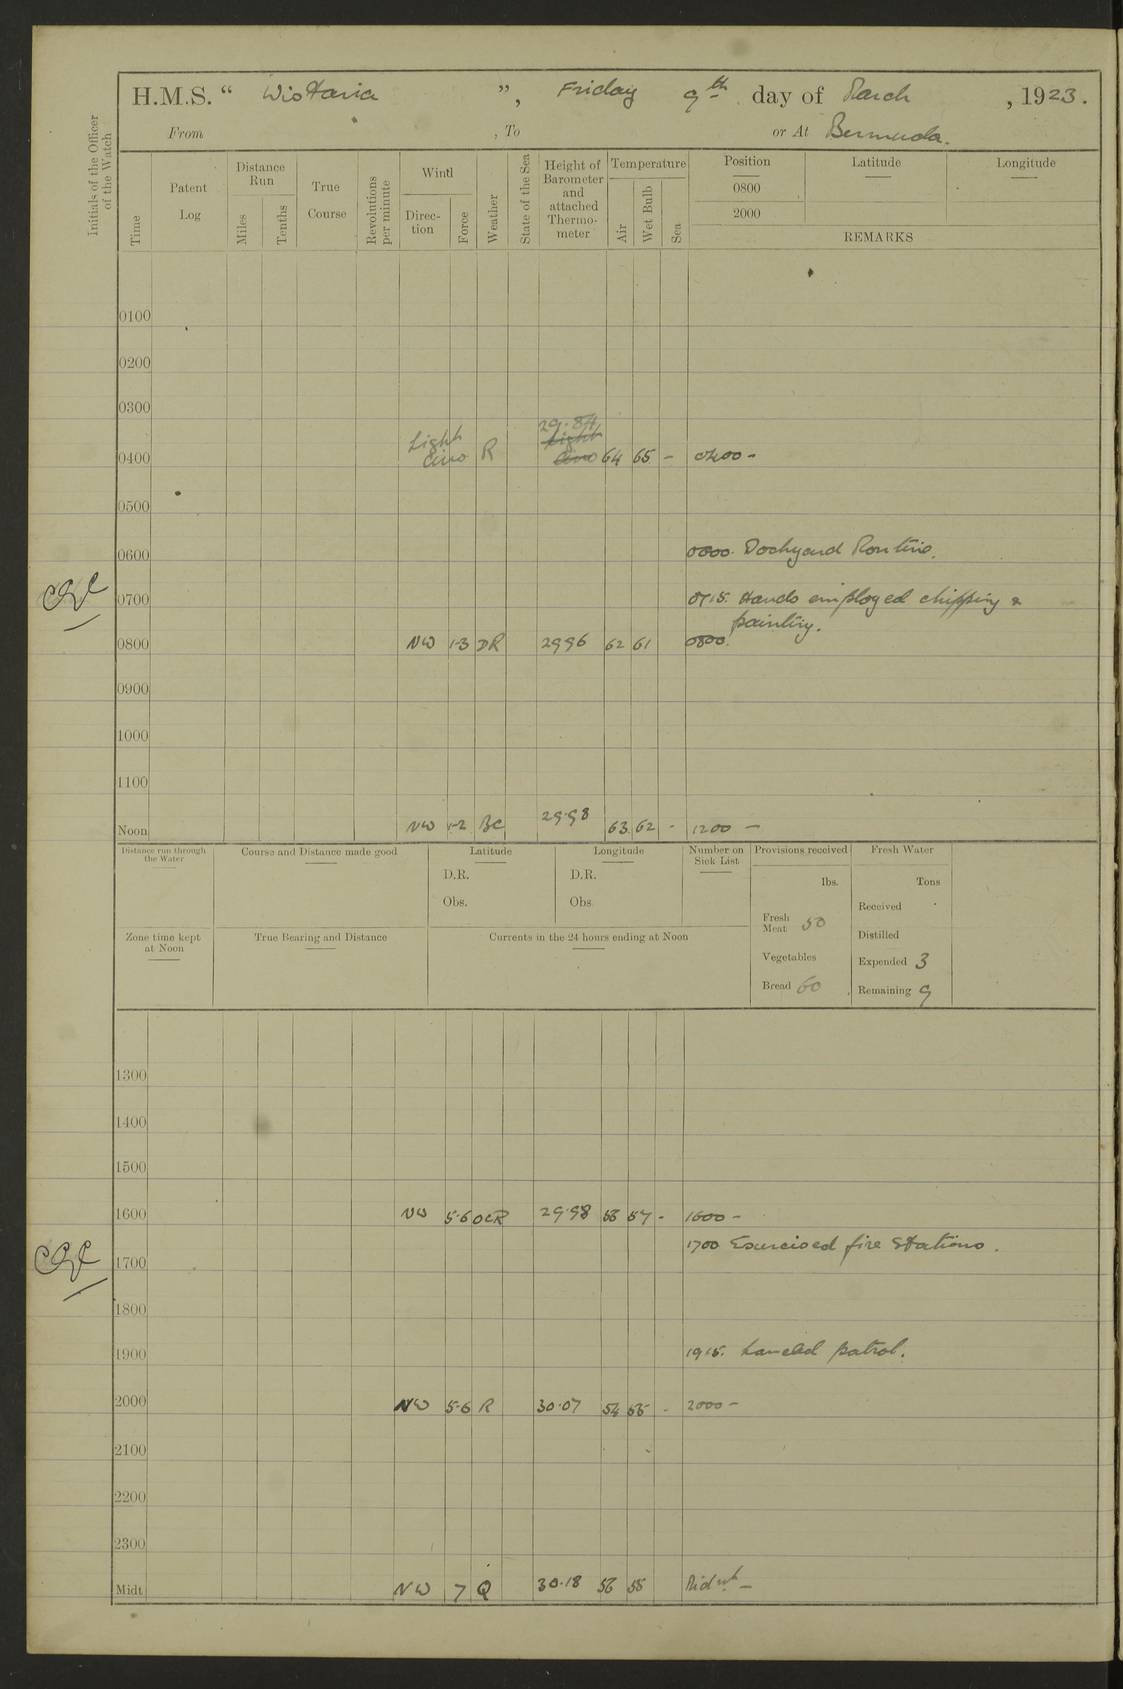 H.M.S. “ Wistaria ”, Friday 9th day of March, 1923.
From , To or At Bermuda.
Initials of the Officer of the Watch
Time
Patent Log
Distance Run
Miles
Tenths
True Course
Revolutions per minute
Wind
Direction
Force
Weather
State of the Sea
Height of Barometer and attached Thermometer
Temperature
Air
Wet Bulb
Sea
Position
0800
2000
Latitude
Longitude
REMARKS
0100
0200
0300
29.84
0400 Light airs R 64 65 - 0400 -
0500
0600 Dockyard Routine.
0700 0715. Hands employed chipping &
painting.
0800 NW 1-3 DR 2996 62 61 0800.
0900
1000
1100
Noon NW 1-2 BC 29.98 63 62 - 1200 -
Distance run through the Water
Course and Distance made good
Latitude
D.R.
Obs.
Longitude
D.R.
Obs
Number on Sick List
Provisions received
lbs.
Fresh Meat 50
Vegetables
Bread 60
Fresh Water
Tons
Received
Distilled
Expended 3
Remaining 9
Zone time kept at Noon
True Bearing and Distance
Currents in the 24 hours ending at Noon
1300
1400
1500
1600 NW 5-6 OCR 29.98 57 - 1600 -
1700 Exercised fire stations.
1700
1800
1900 1915. Landed patrol.
2000 NW 5-6 R 30.07 54 - 2000 -
2100
2200
2300
Midt NW 7 Q 30.18 Midnt -